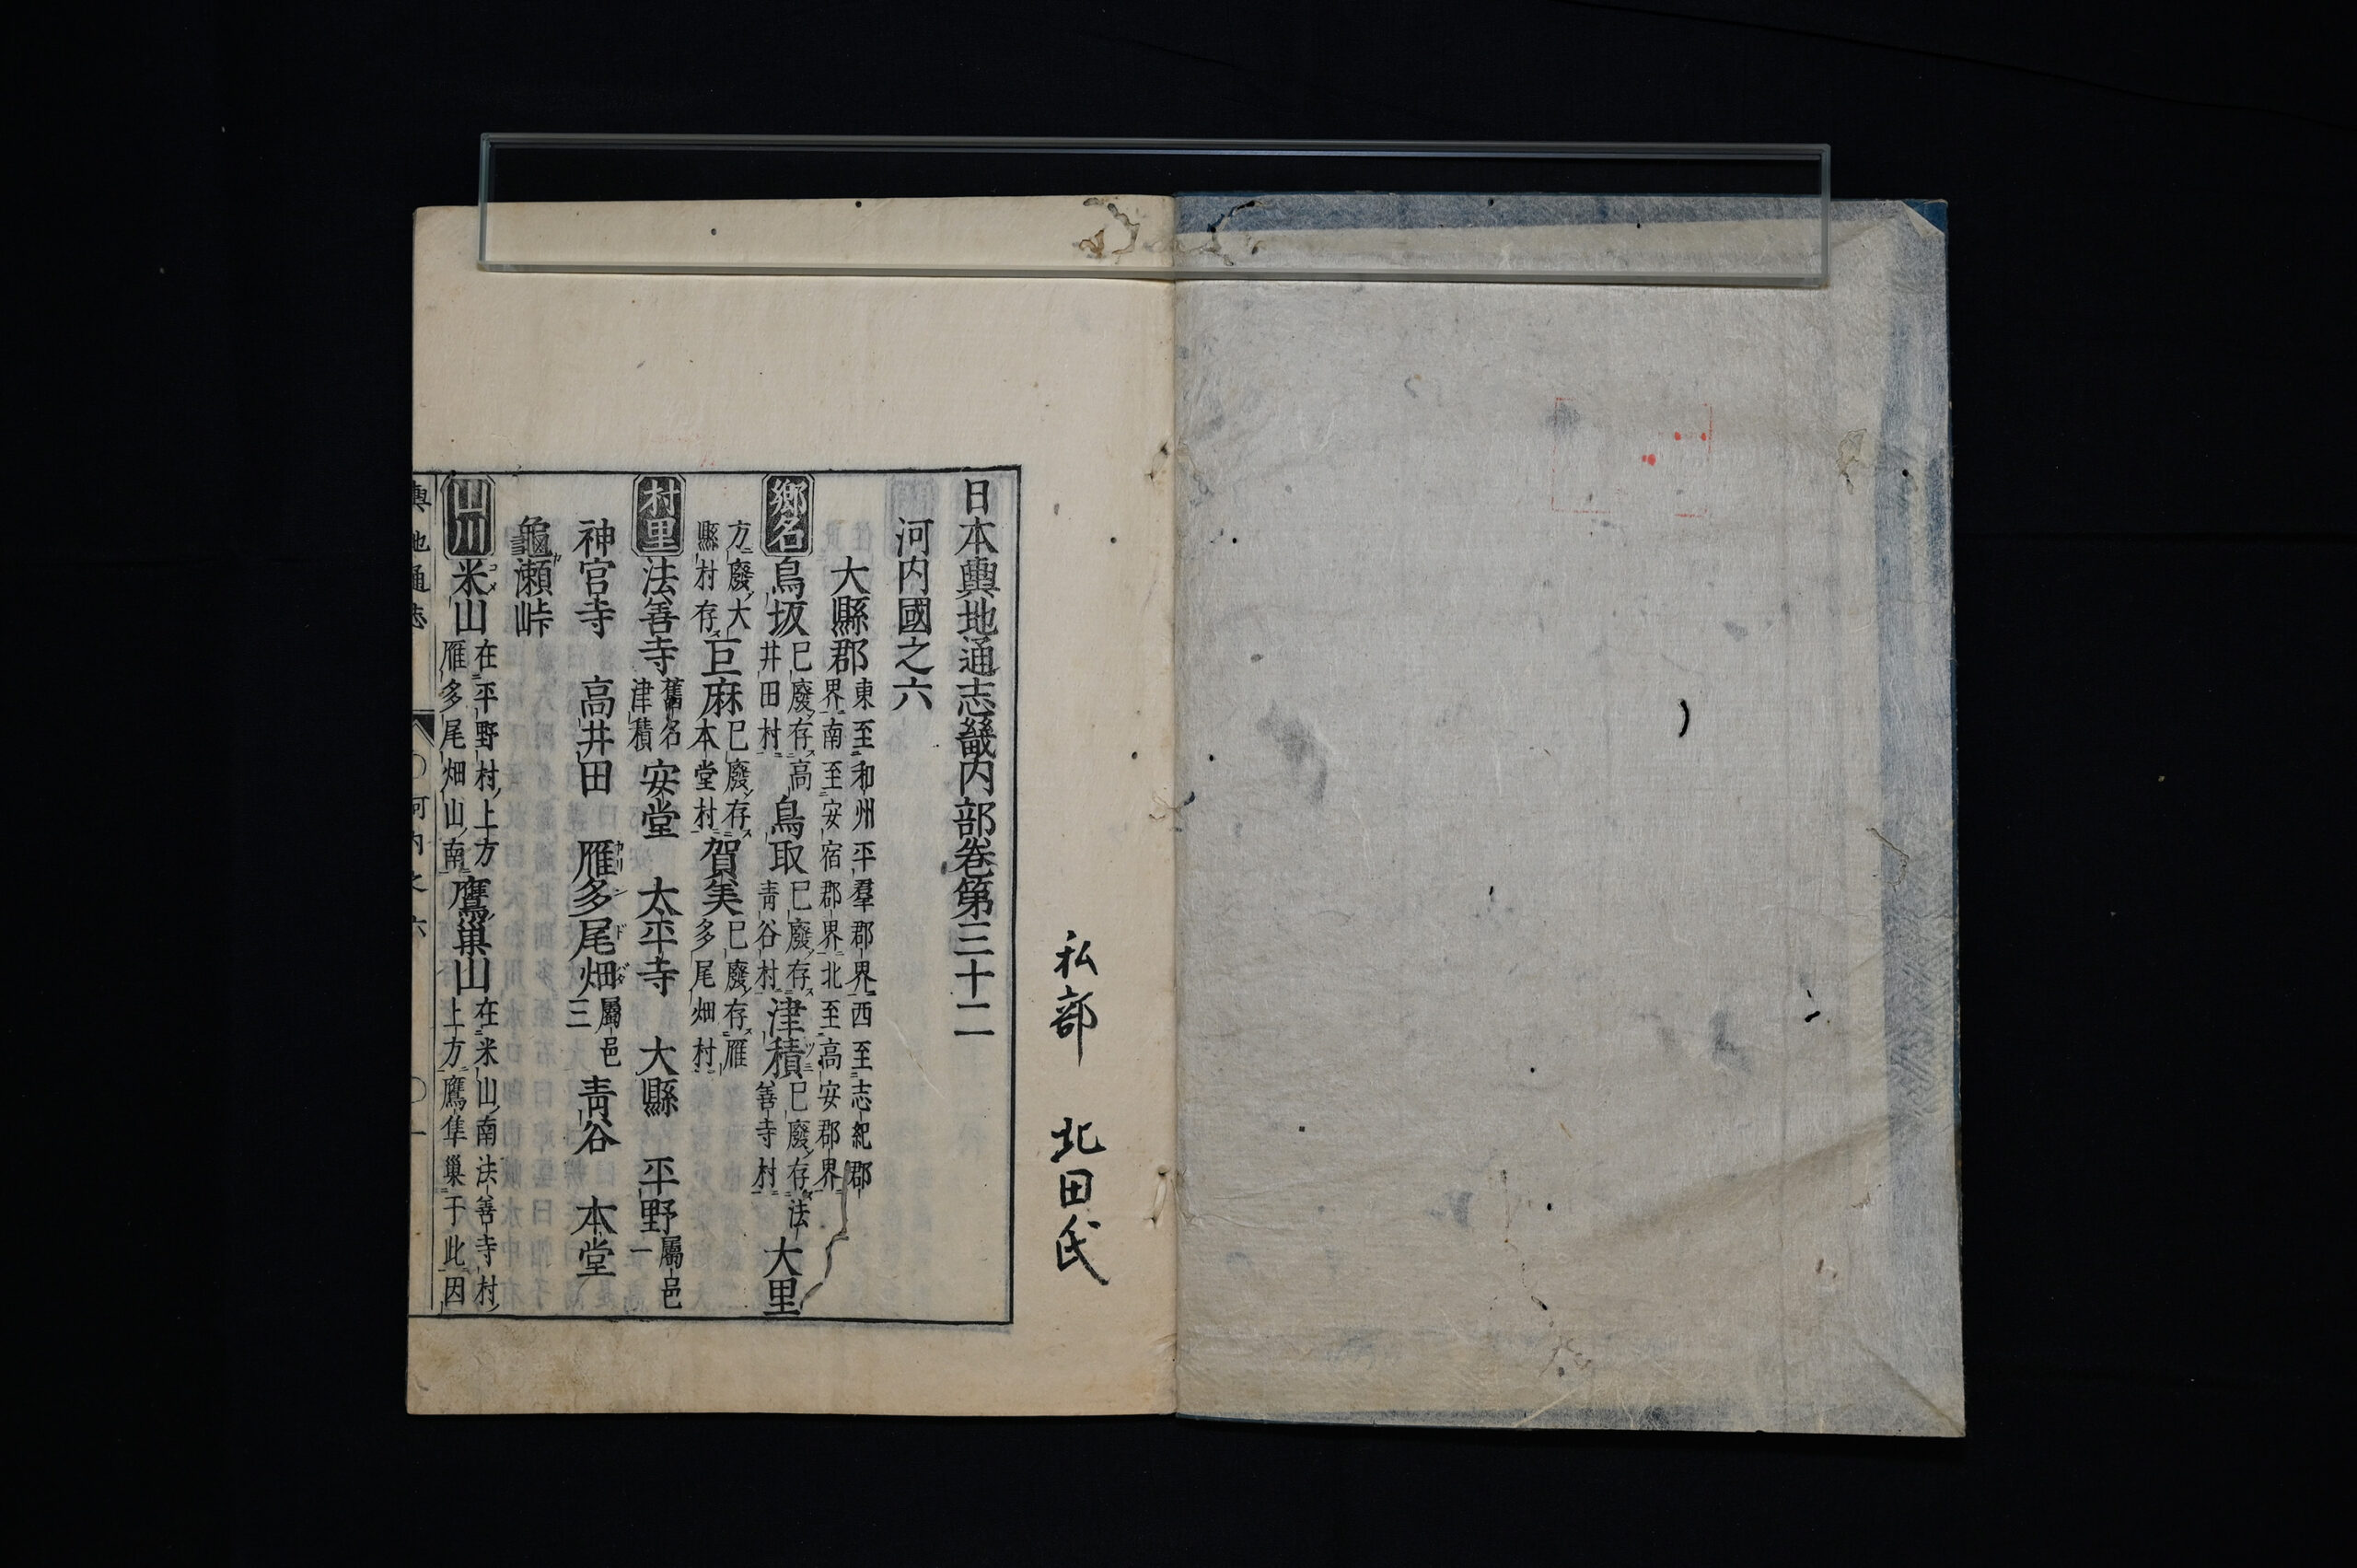 私部 北田氏
日本輿地通志畿内部卷第三十二
河内國之六
大縣郡 東至和州平羣郡界西至志紀郡
界南至安宿郡界北至高安郡界
鄉名 鳥坂 已廢存高
井田村 鳥取 已廢存
靑谷村 津積 已廢存法
善寺村 大里
方廢大
縣村存 巨麻 已廢存
本堂村 賀美 已廢存雁
多尾畑村
村里 法善寺 舊名
津積 安堂 太平寺 大縣 平野 屬邑
一
神宮寺 高井田 雁多尾畑 屬邑
三 靑谷 本堂
龜瀬峠
山川 米山 在平野村上方
雁多尾畑山南 鷹巣山 在米山南法善寺村
上方鷹隼巣于此因
輿地通志 河内之六 一